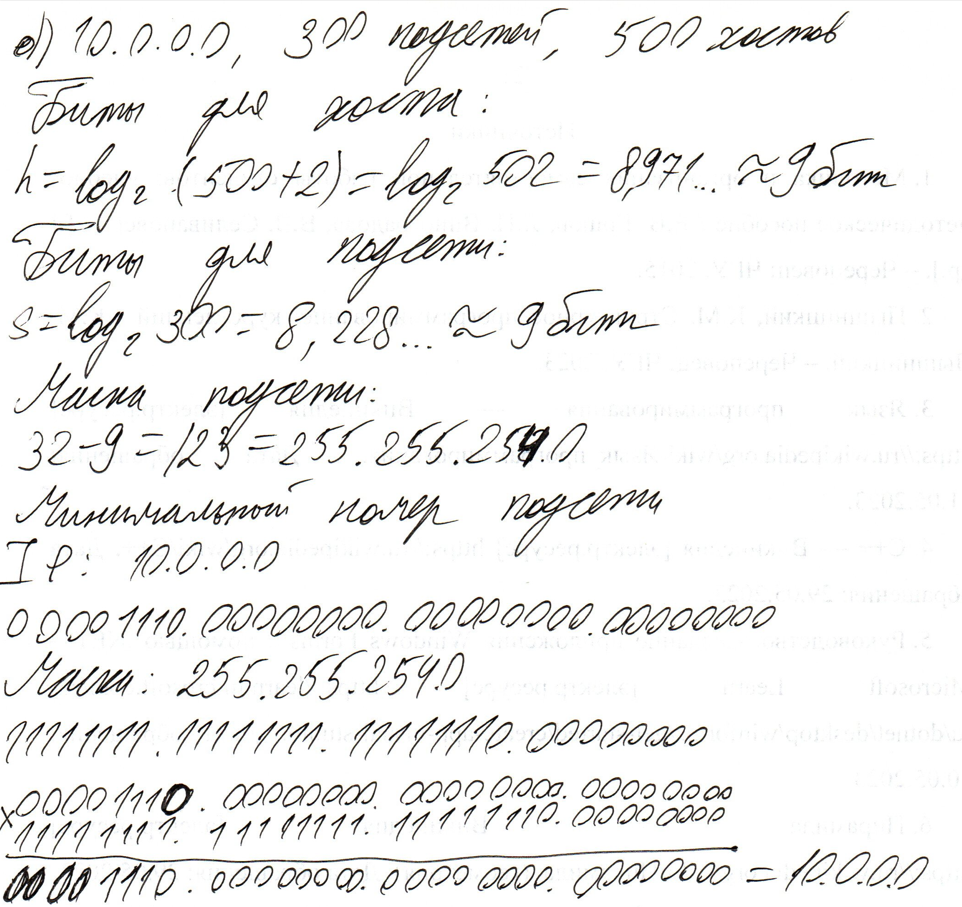 е) 10.0.0.0, 300 подсетей, 500 хостов
Биты для хоста:
h = log₂ (500+2) log₂ 502 = 8,971... ≈ 9 бит
Биты для подсети:
S = log₂ 300 = 8,228... ≈ 9 бит
Маска подсети:
32-9 = /23 = 255.255.254.0
Минимальный номер подсети
IP: 10.0.0.0
00001110. 00000000. 00000000. 00000000
Маска: 255.255.254.0
11111111. 11111111. 11111110. 00000000
00001110. 00000000. 00000000. 00000000
x
11111111. 11111111. 11111110. 00000000
00001110. 00000000. 00000000. 00000000 = 10.0.0.0